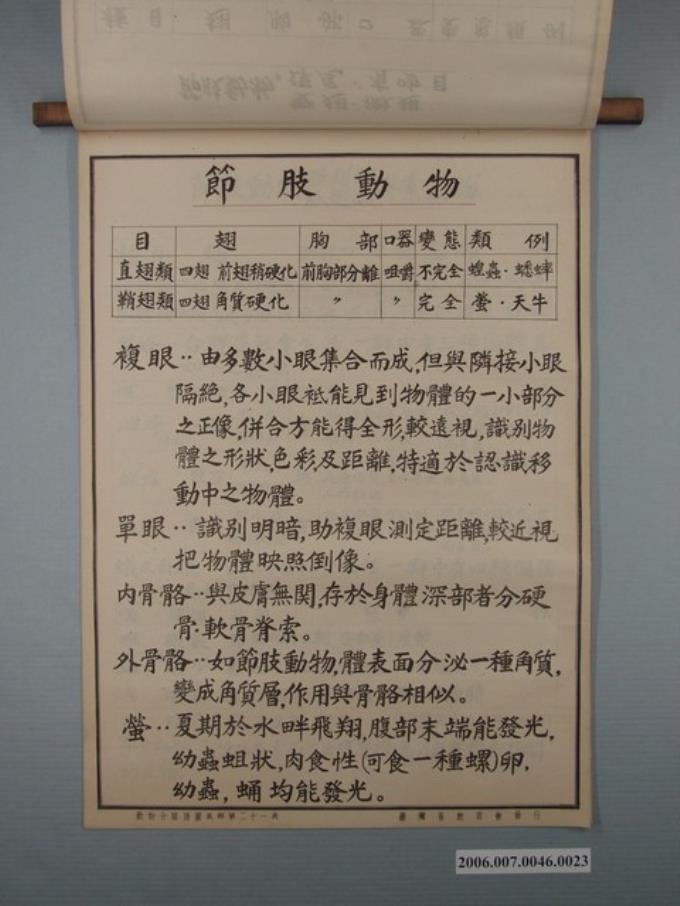 節肢動物
目 翅 胸部 口器 變態 類例
直翅類 四翅 前翅稍硬化 前胸部分離 咀嚼 不完全 蝗蟲·蟋蟀
鞘翅類 四翅角質硬化 〃 〃 完全 螢·天牛
複眼‥由多數小眼集合而成,但與隣接小眼
隔絶,各小眼祗能見到物體的一小部分
之正像,併合方能得全形,較遠視,識別物
體之形狀,色彩及距離,特適於認識移
動中之物體。
單眼‥識別明暗,助複眼測定距離,較近視
把物體映照倒像。
内骨骼‥與皮膚無関,存於身體深部者分硬
骨·軟骨脊索。
外骨骼‥如節肢動物,體表面分泌一種角質,
變成角質層,作用與骨骼相似。
螢‥夏期於水畔飛翔,腹部末端能發光,
幼蟲蛆狀,肉食性(可食一種螺)卵,
幼蟲,蛹均能發光。
臺灣省教育會發行
2006.007.0046.0023